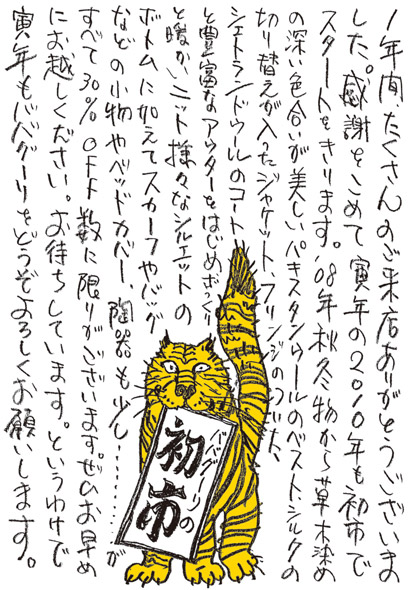 1年間たくさんのご来店ありがとうございま
した。感謝をこめて寅年の2010年も初市で
スタートをきります。'08年秋冬物から草木染め
の深い色合いが美しいパキスタンウールのベスト、シルクの
切り替えが入ったジャケット、フリンジのついた、
シェトランドウールのコート
と豊富なアウターをはじめ、ざっくり
と暖かいニット、様々なシルエットの
ボトムに加えてスカーフやバッグ
などの小物やベッドカバー、陶器も少し………が
すべて30%OFF 数に限りがございます。ぜひお早め
にお越しください。お待ちしています。というわけで
寅年もババグーリをどうぞよろしくお願いします。
ババグーリの
初市